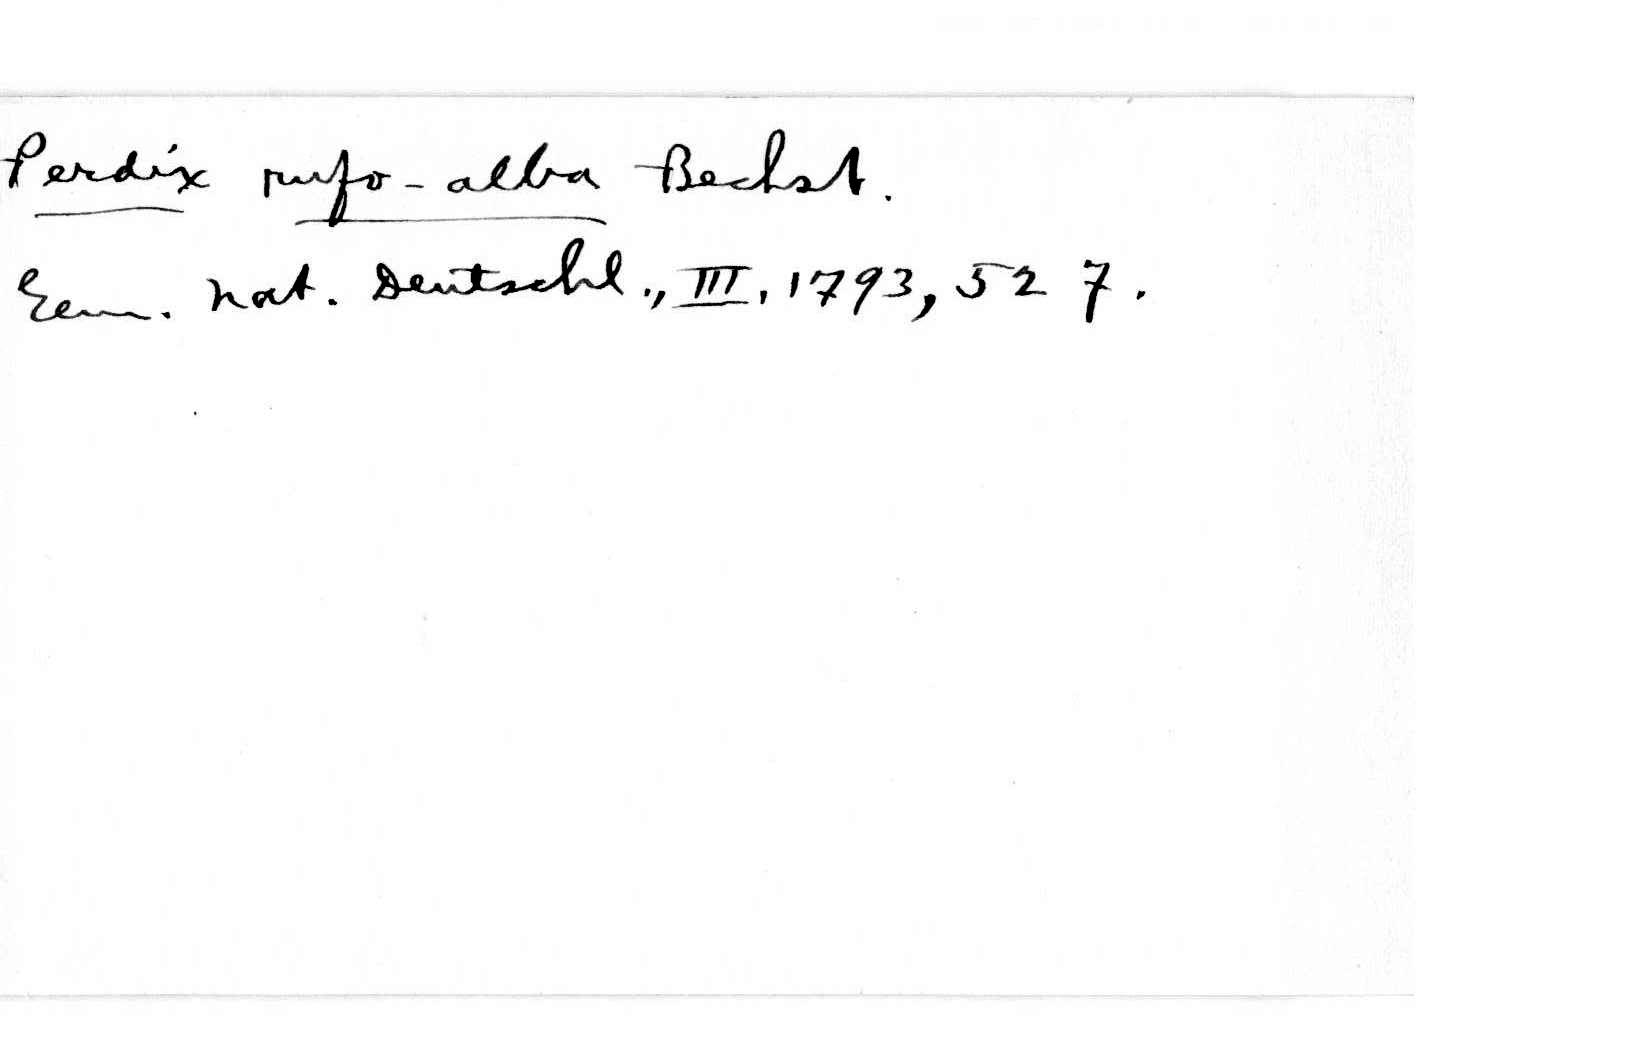 Perdix rufo-alba Bechst.
Gem. Nat. Deutschl., III, 1793, 527.